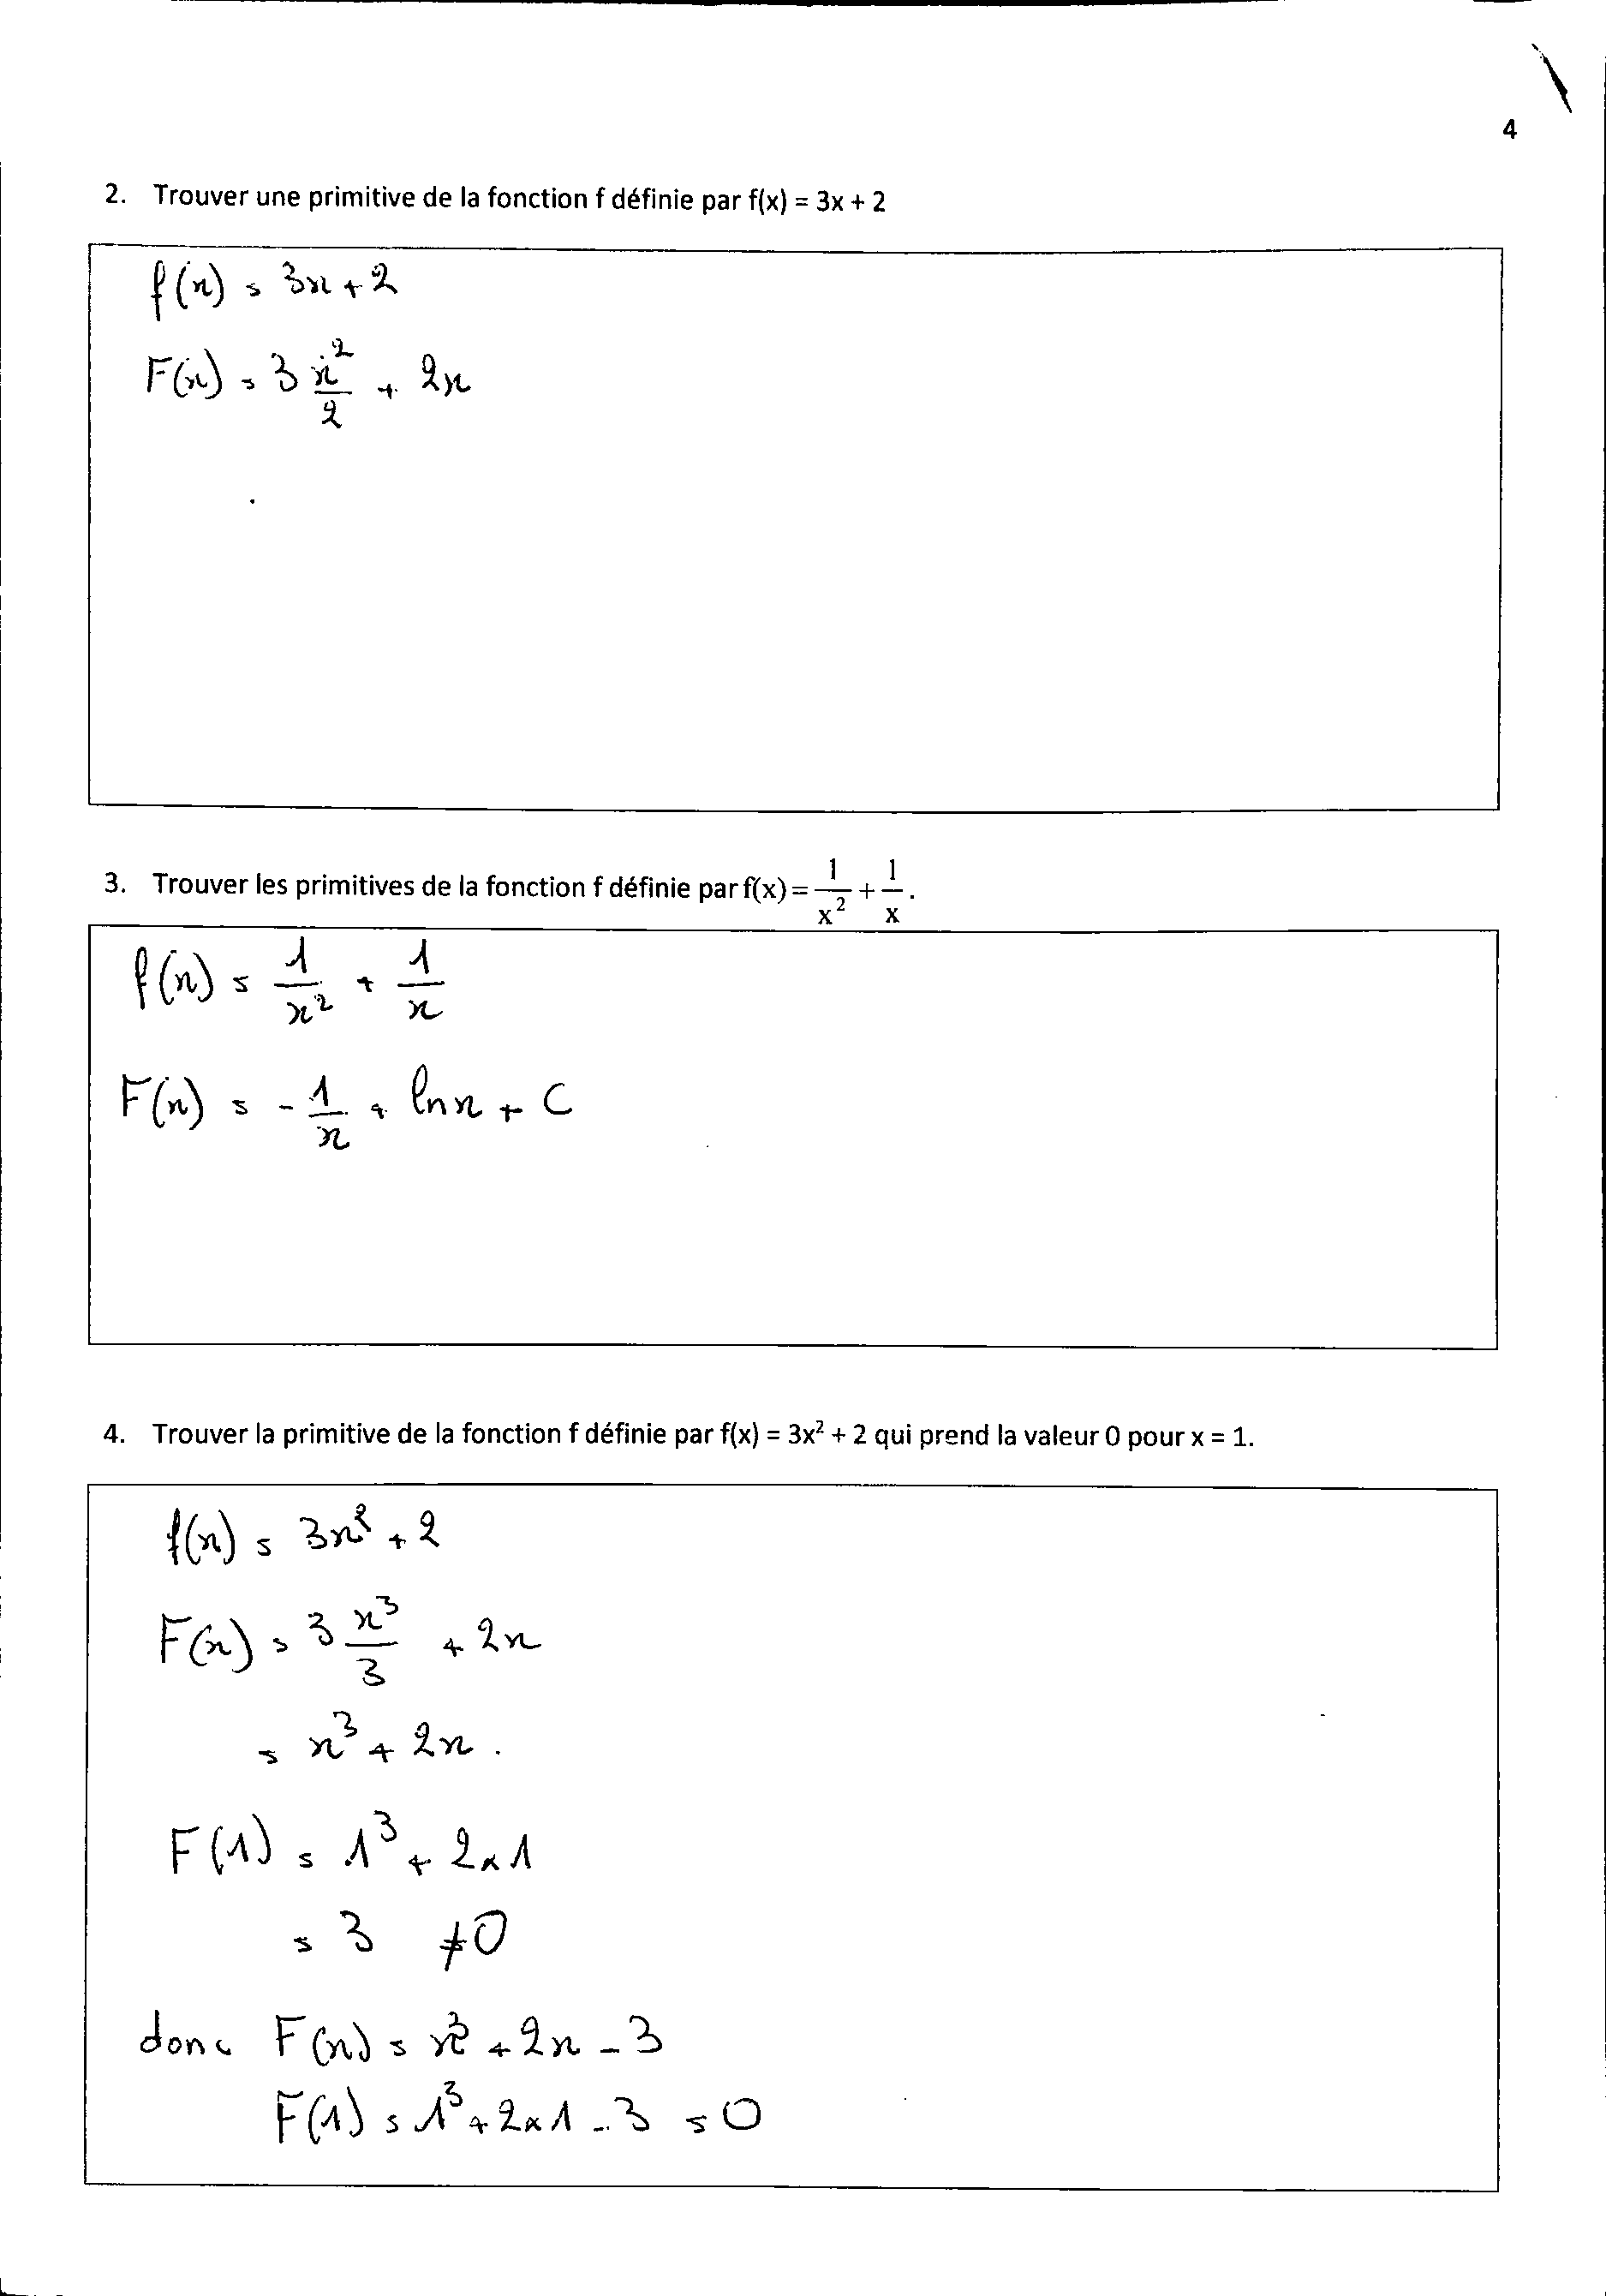 4
2. Trouver une primitive de la fonction f définie par f(x) = 3x + 2
f(x) = 3x + 2
F(x) = 3 x²/2 + 2x
3. Trouver les primitives de la fonction f définie par f(x) = 1/x² + 1/x .
f(x) = 1/x² + 1/x
F(x) = - 1/x + ln x + C
4. Trouver la primitive de la fonction f définie par f(x) = 3x² + 2 qui prend la valeur 0 pour x = 1.
f(x) = 3x² + 2
F(x) = 3 x³/3 + 2x
= x³ + 2x .
F(1) = 1³ + 2×1
= 3 ≠ 0
donc F(x) = x³ + 2x - 3
F(1) = 1³ + 2×1 - 3 = 0